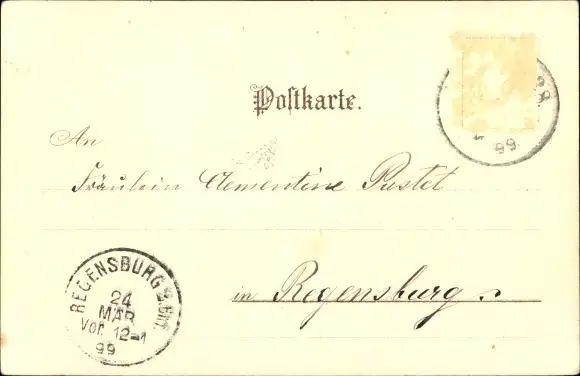 Postkarte.
An
Fräulein Clementine Pustet
in Regensburg.
99
REGENSBURG
24
MÄR
Vor. 12-1
99